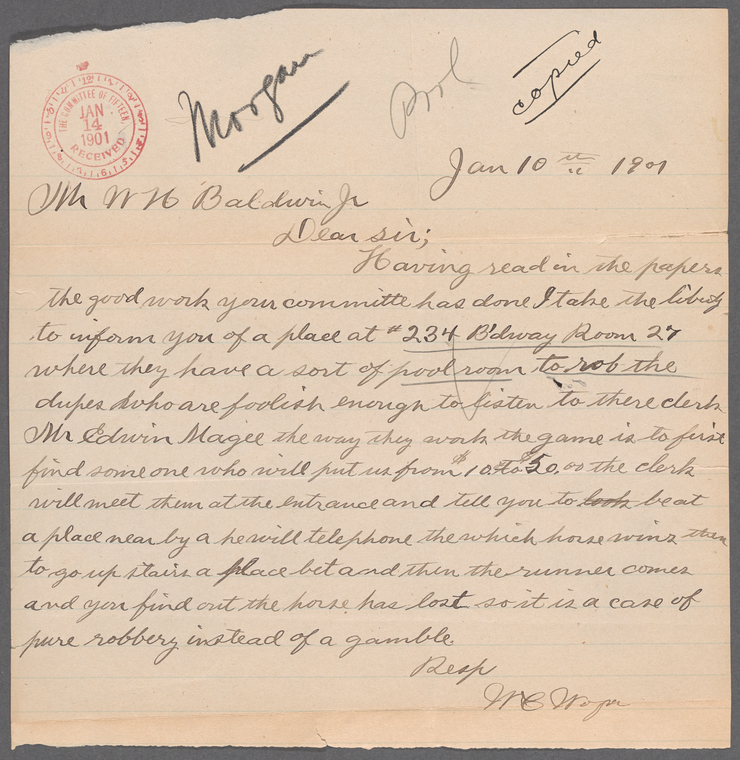 THE COMMITTEE OF FIFTEEN.
JAN
14
1901
RECEIVED
Morgan
Pool
copied
Jan 10th 1901
Mr W H Baldwin Jr
Dear sir;
Having read in the papers
the good work your committe has done I take the liberty
to inform you of a place at #234 B'dway Room 27
where they have a sort of pool room to rob the
dupes who are foolish enough to listen to there clerk
Mr Edwin Magee the way they work the game is to first
find some one who will put us from $10 to $50.00 the clerk
will meet them at the entrance and tell you to look be at
a place near by a he will telephone the which horse wins than
to go up stairs a place bet and then the runner comes
and you find out the horse has lost so it is a case of
pure robbery instead of a gamble.
Resp
W C